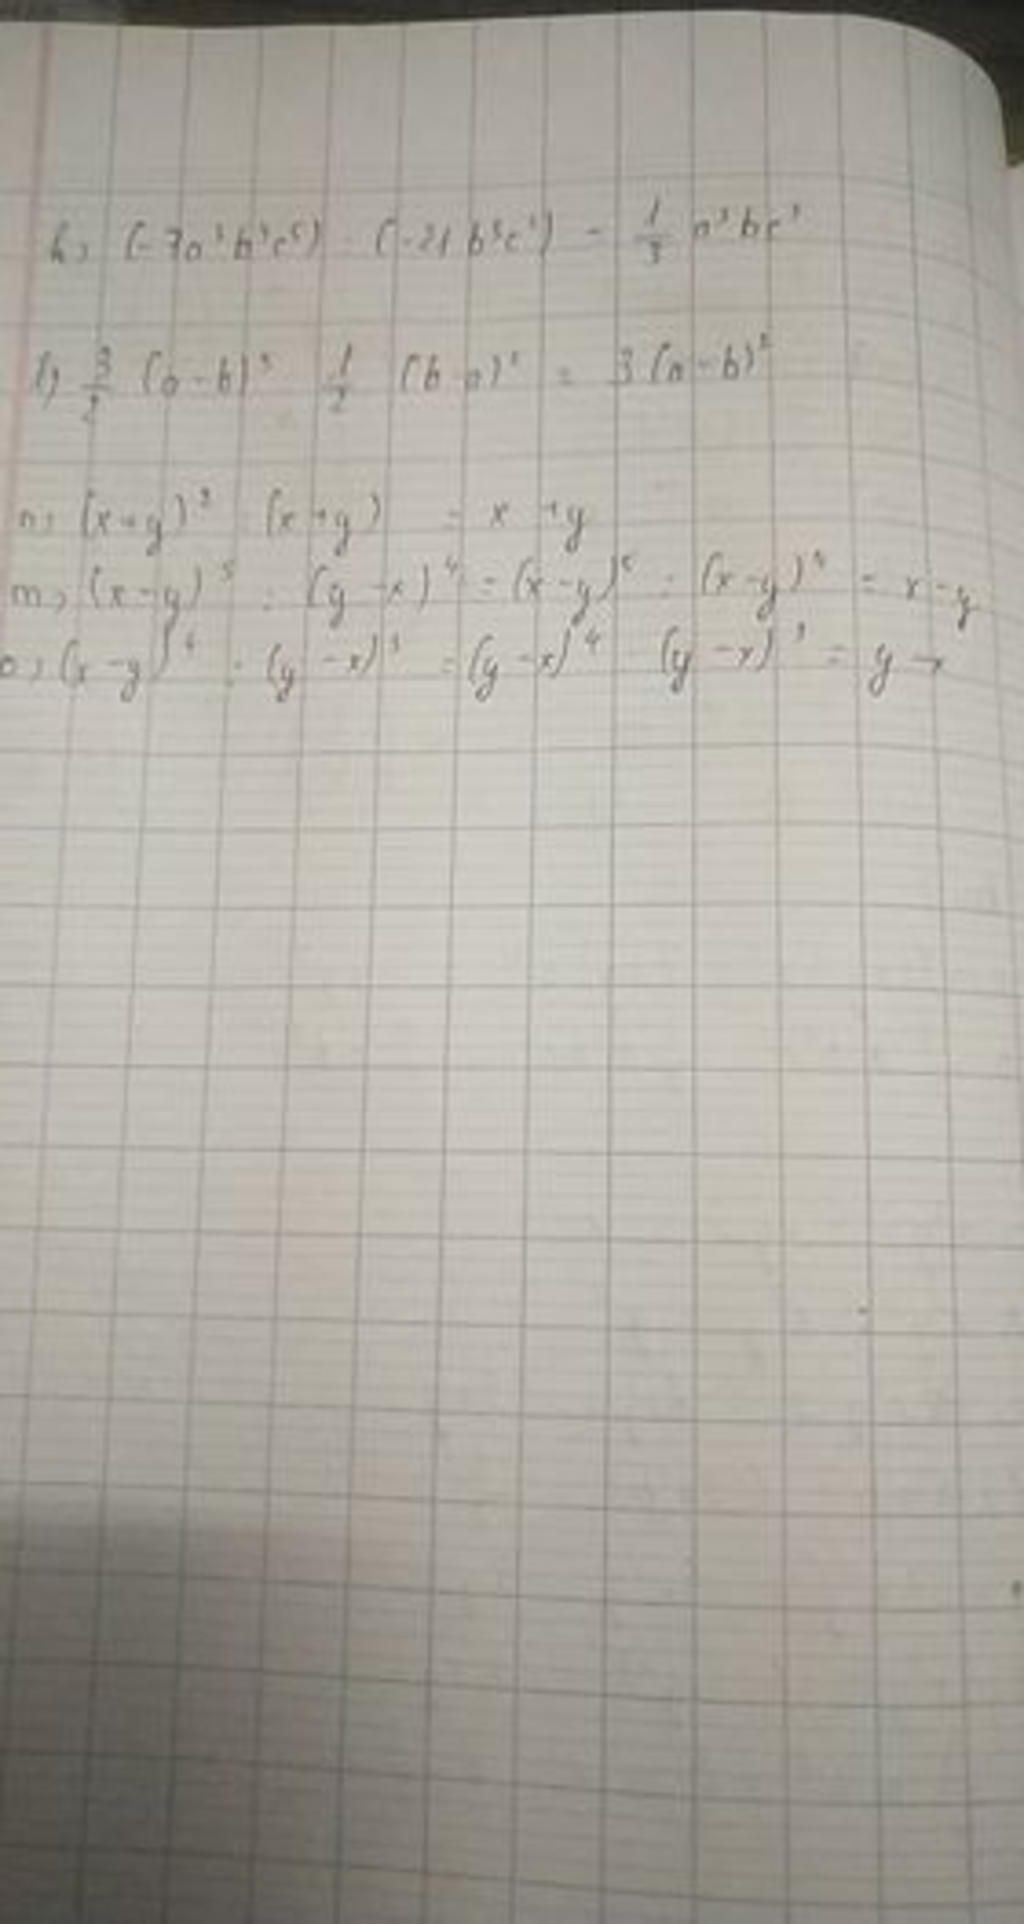 h, (-7a³b³c⁵) : (-21b⁵c³) = 1/3 a³bc³
l, 3/2 (a-b)³ 1/2 (b a)² = 3(a-b)²
n, (x+y)² (x+y) = x+y
m, (x-y)⁵ : (y-x)⁴ = (x-y)⁵ : (x-y)⁴ = x-y
o, (x-y)⁴ : (y-x)³ = (y-x)⁴ (y-x)³ = y-x